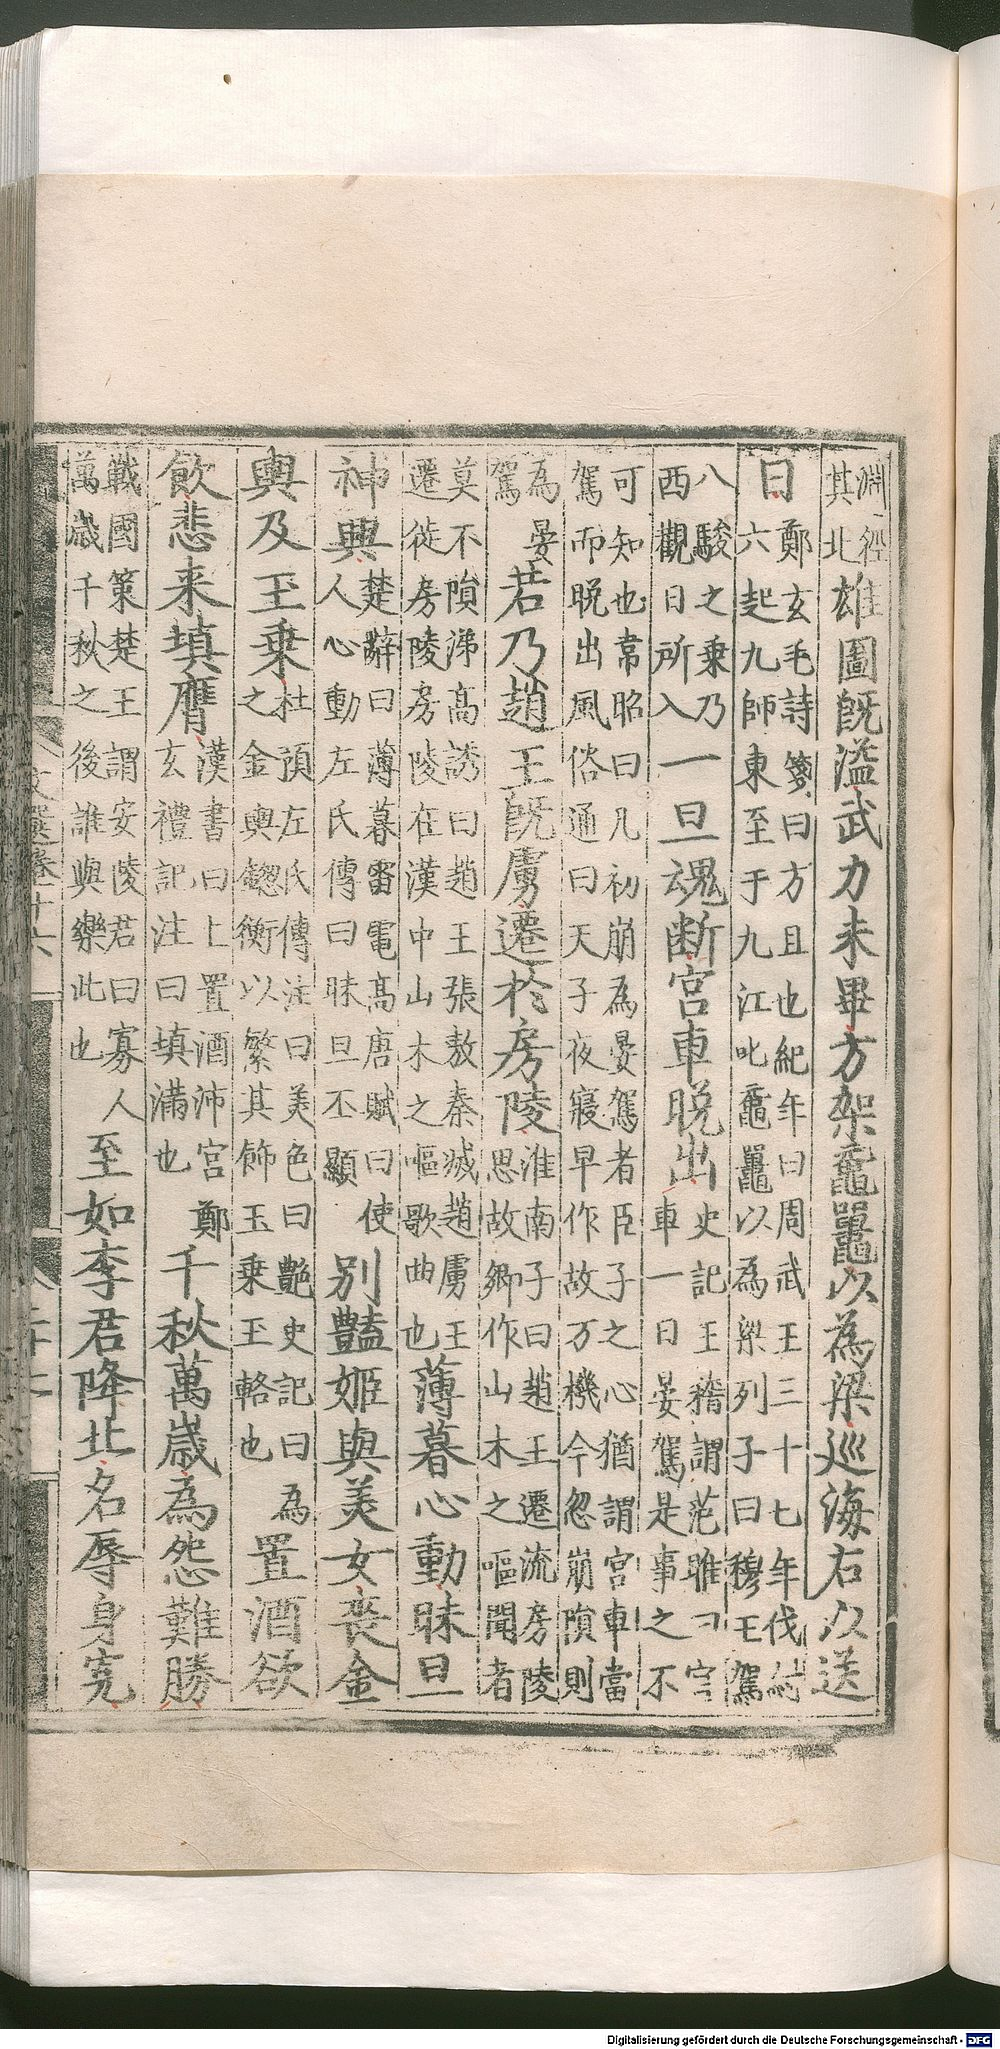 淵經
其北
雄圖既溢武力未畢方架黿鼉以為梁巡海右以送
日
鄭玄毛詩箋曰方且也紀年曰周武王三十七年伐紂
六起九師東至于九江叱黿鼉以為梁列子曰穆王駕
八駿之乗乃
西觀日所入
一旦魂断宮車晚出
史記王稽謂范雎曰宮
車一日晏駕是事之不
可知也韋昭曰凡初崩為晏駕者臣子之心猶謂宮車當
駕而晚出風俗通曰天子夜寢早作故万機今忽崩隕則
為晏
駕
若乃趙王既虜遷於房陵
淮南子曰趙王遷流房陵
思故鄉作山木之嘔聞者
莫不隕涕高誘曰趙王張敖秦滅趙虜王
遷徙房陵房陵在漢中山木之嘔歌曲也
薄暮心動昧旦
神興
楚辭曰薄暮雷電高唐賦曰使
人心動左氏傳曰昧旦丕顯
别豔姬與美女喪金
輿及玉乗
杜預左氏傳注曰美色曰艷史記曰為
之金輿鍯衡以繁其飾玉乗玉輅也
置酒欲
飲悲来填膺
漢書曰上置酒沛宮鄭
玄禮記注曰填滿也
千秋萬歲為怨難勝
戰國策楚王謂安陵君曰寡人
萬歲千秋之後誰與樂此也
至如李君降北名辱身冤
文選卷十六
Digitalisierung gefördert durch die Deutsche Forschungsgemeinschaft - DFG